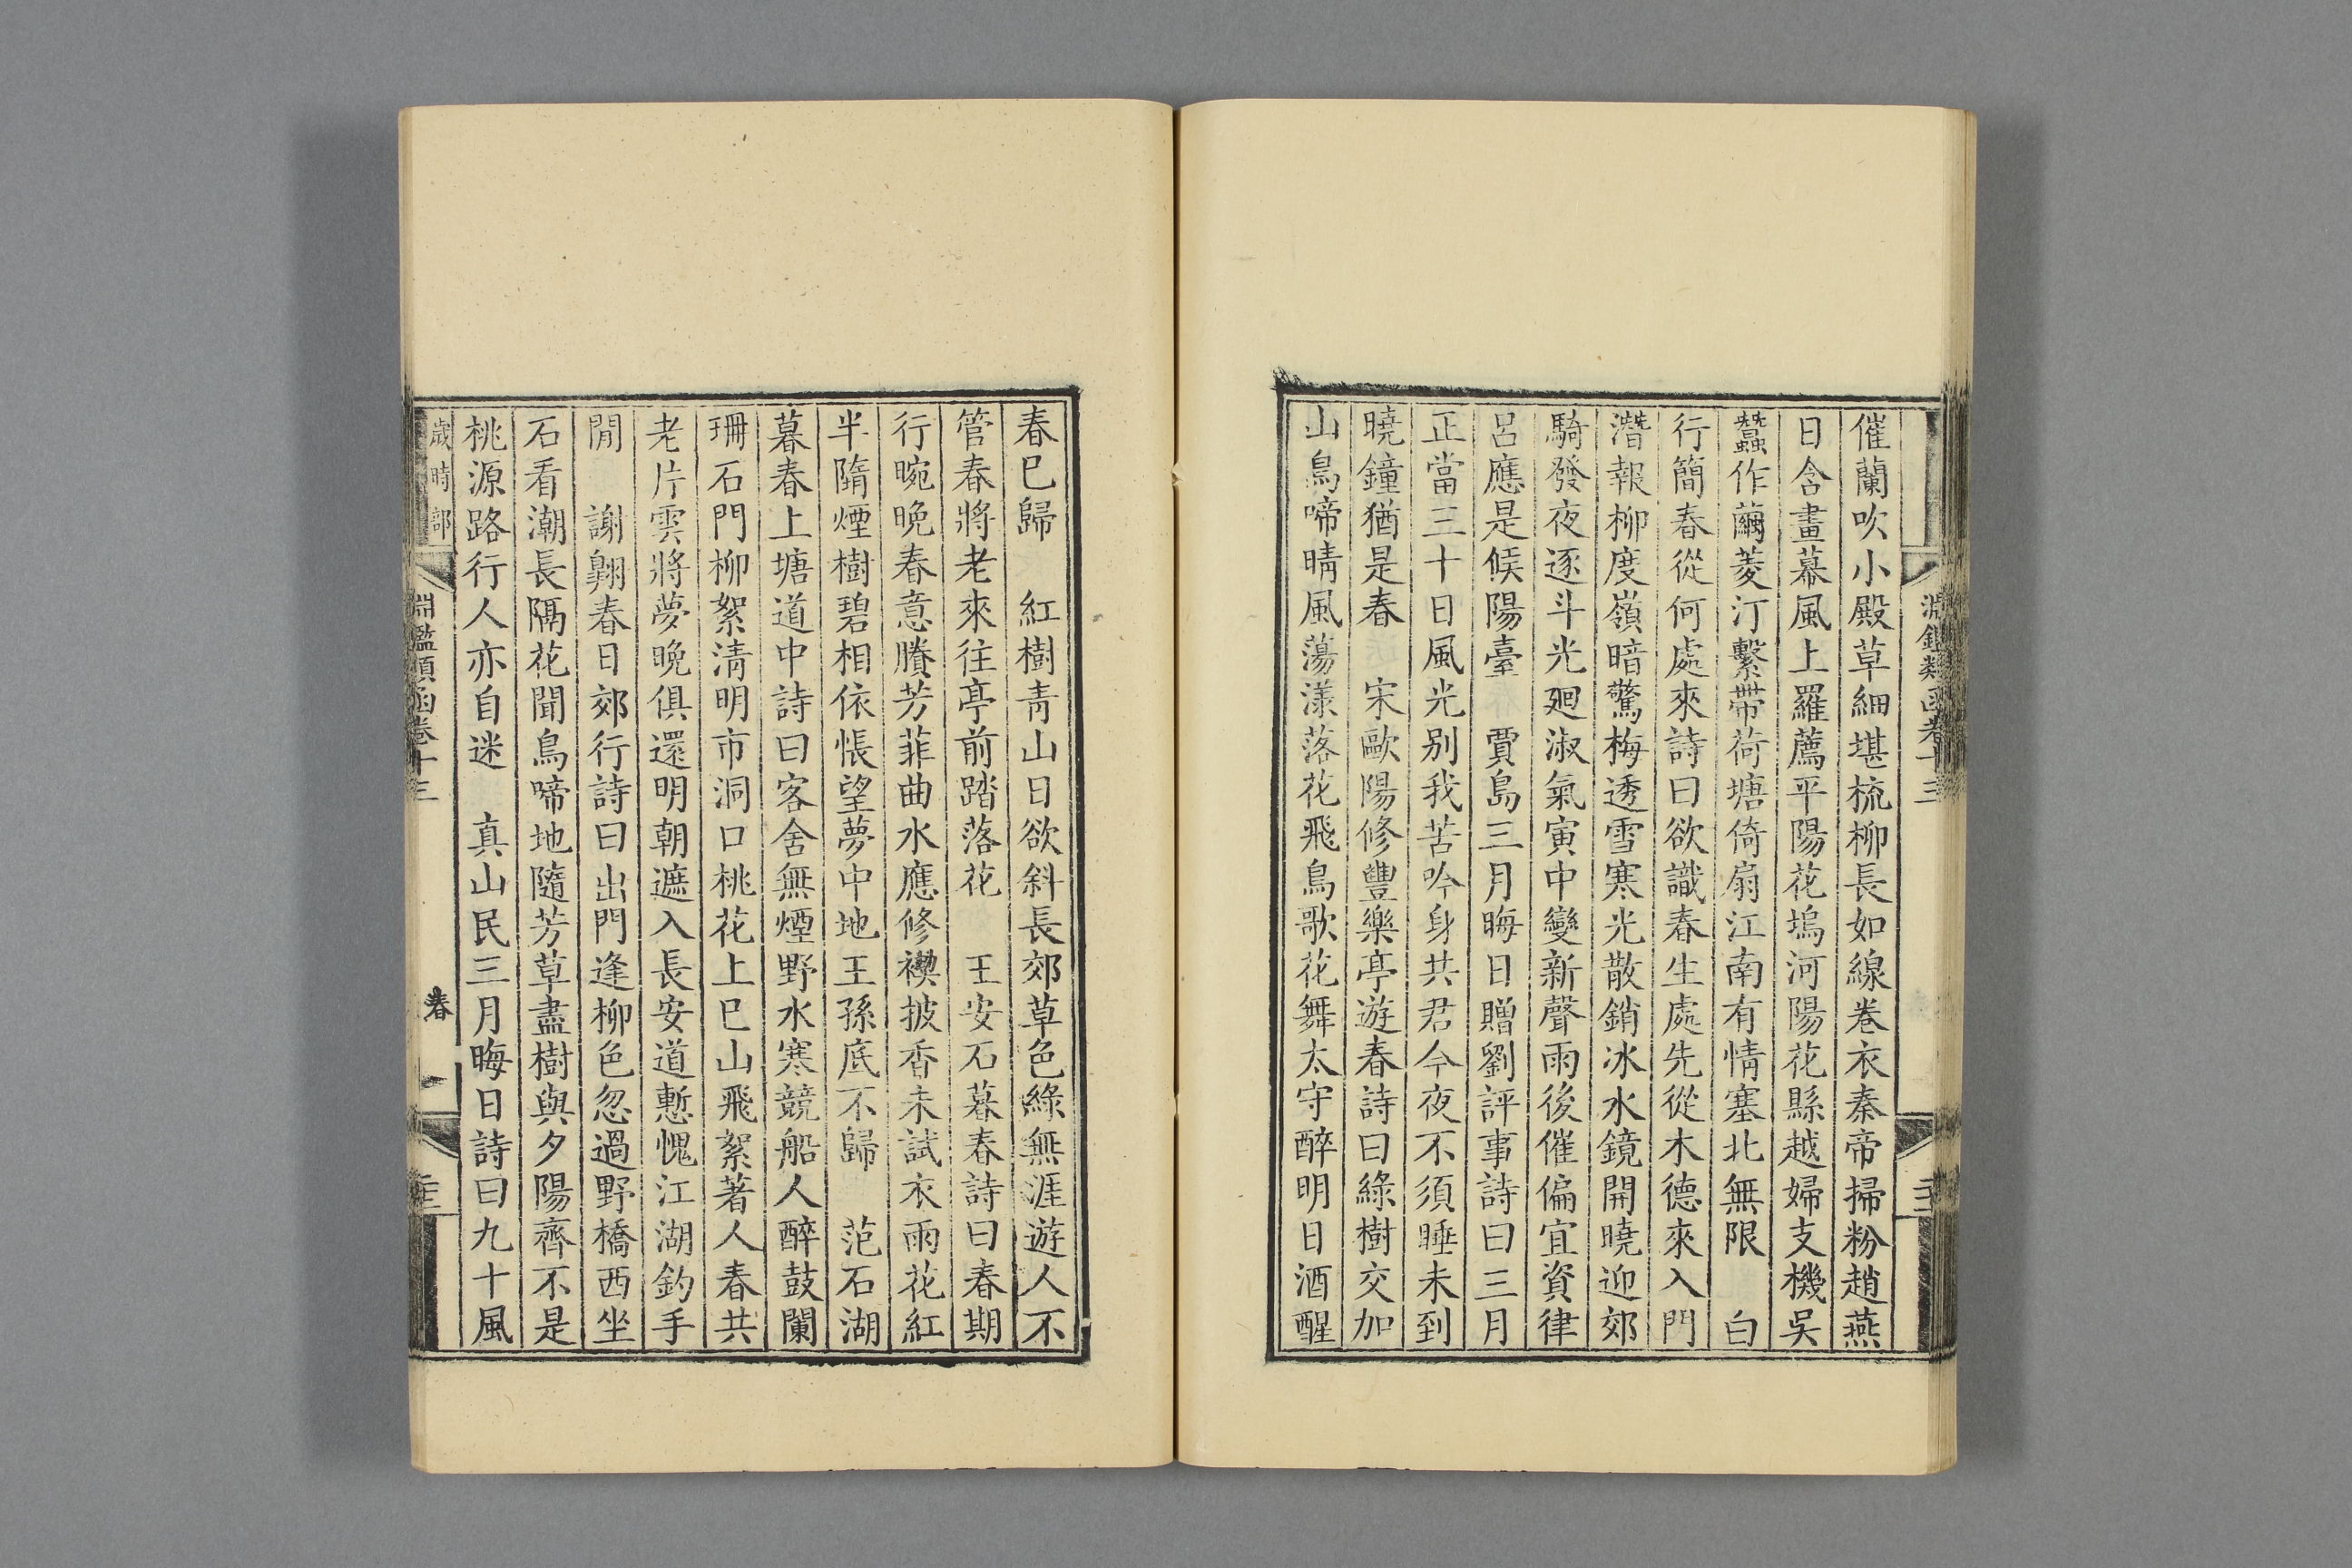 淵鑑類函卷十三
催蘭吹小殿草細堪梳柳長如線卷衣秦帝掃粉趙燕
日含畫幕風上羅薦平陽花塢河陽花縣越婦支機吳
蠶作繭菱汀繫帶荷塘倚扇江南有情塞北無限　白
行簡春從何處來詩曰欲識春生處先從木德來入門
潛報柳度嶺暗驚梅透雪寒光散銷冰水鏡開曉迎郊
騎發夜逐斗光廻淑氣寅中變新聲雨後催偏宜資律
呂應是候陽臺　賈島三月晦日贈劉評事詩曰三月
正當三十日風光別我苦吟身共君今夜不須睡未到
曉鐘猶是春　宋歐陽修豐樂亭遊春詩曰綠樹交加
山鳥啼晴風蕩漾落花飛鳥歌花舞太守醉明日酒醒
春已歸　紅樹青山日欲斜長郊草色綠無涯遊人不
管春將老來往亭前踏落花　王安石暮春詩曰春期
行晼晚春意賸芳菲曲水應修禊披香未試衣雨花紅
半隋煙樹碧相依悵望夢中地王孫底不歸　范石湖
暮春上塘道中詩曰客舍無煙野水寒競船人醉鼓闌
珊石門柳絮淸明市洞口桃花上巳山飛絮著人春共
老片雲將夢晚俱還明朝遮入長安道慙愧江湖釣手
閒　謝翺春日郊行詩曰出門逢柳色忽過野橋西坐
石看潮長隔花聞鳥啼地隨芳草盡樹與夕陽齊不是
桃源路行人亦自迷　真山民三月晦日詩曰九十風
歲時部
淵鑑類函卷十三
春